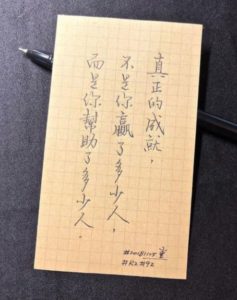 真正的成就，
不是你贏了多少人，
而是你幫助了多少人．
#20181105
#R2 #92